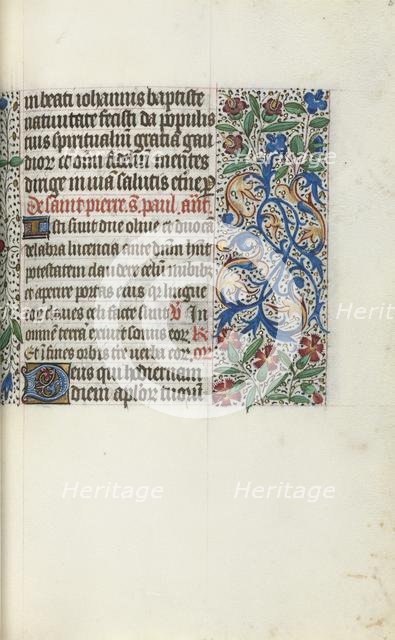 in beati iohannis baptiste
nativitate fecisti da populis
tuis spiritualium gratia gau
dior et omnium fidelium mentes
dirige in viam salutis eterne p
De saint pierre & s. paul. ant.
Isti sunt due olive et duo ca
delabra lucencia ante dum hnt
potestatem claudere celum nubibus
et aperire portas eius q lingue
eor claves celi facte sunt V In
omnem terra exivit sonus eor R
Et i fines orbis tre verba eor or
Deus qui hodiernam
diem aplor tuorum
Heritage
Heritage
Heritage
Heritage
Heritage
Heritage